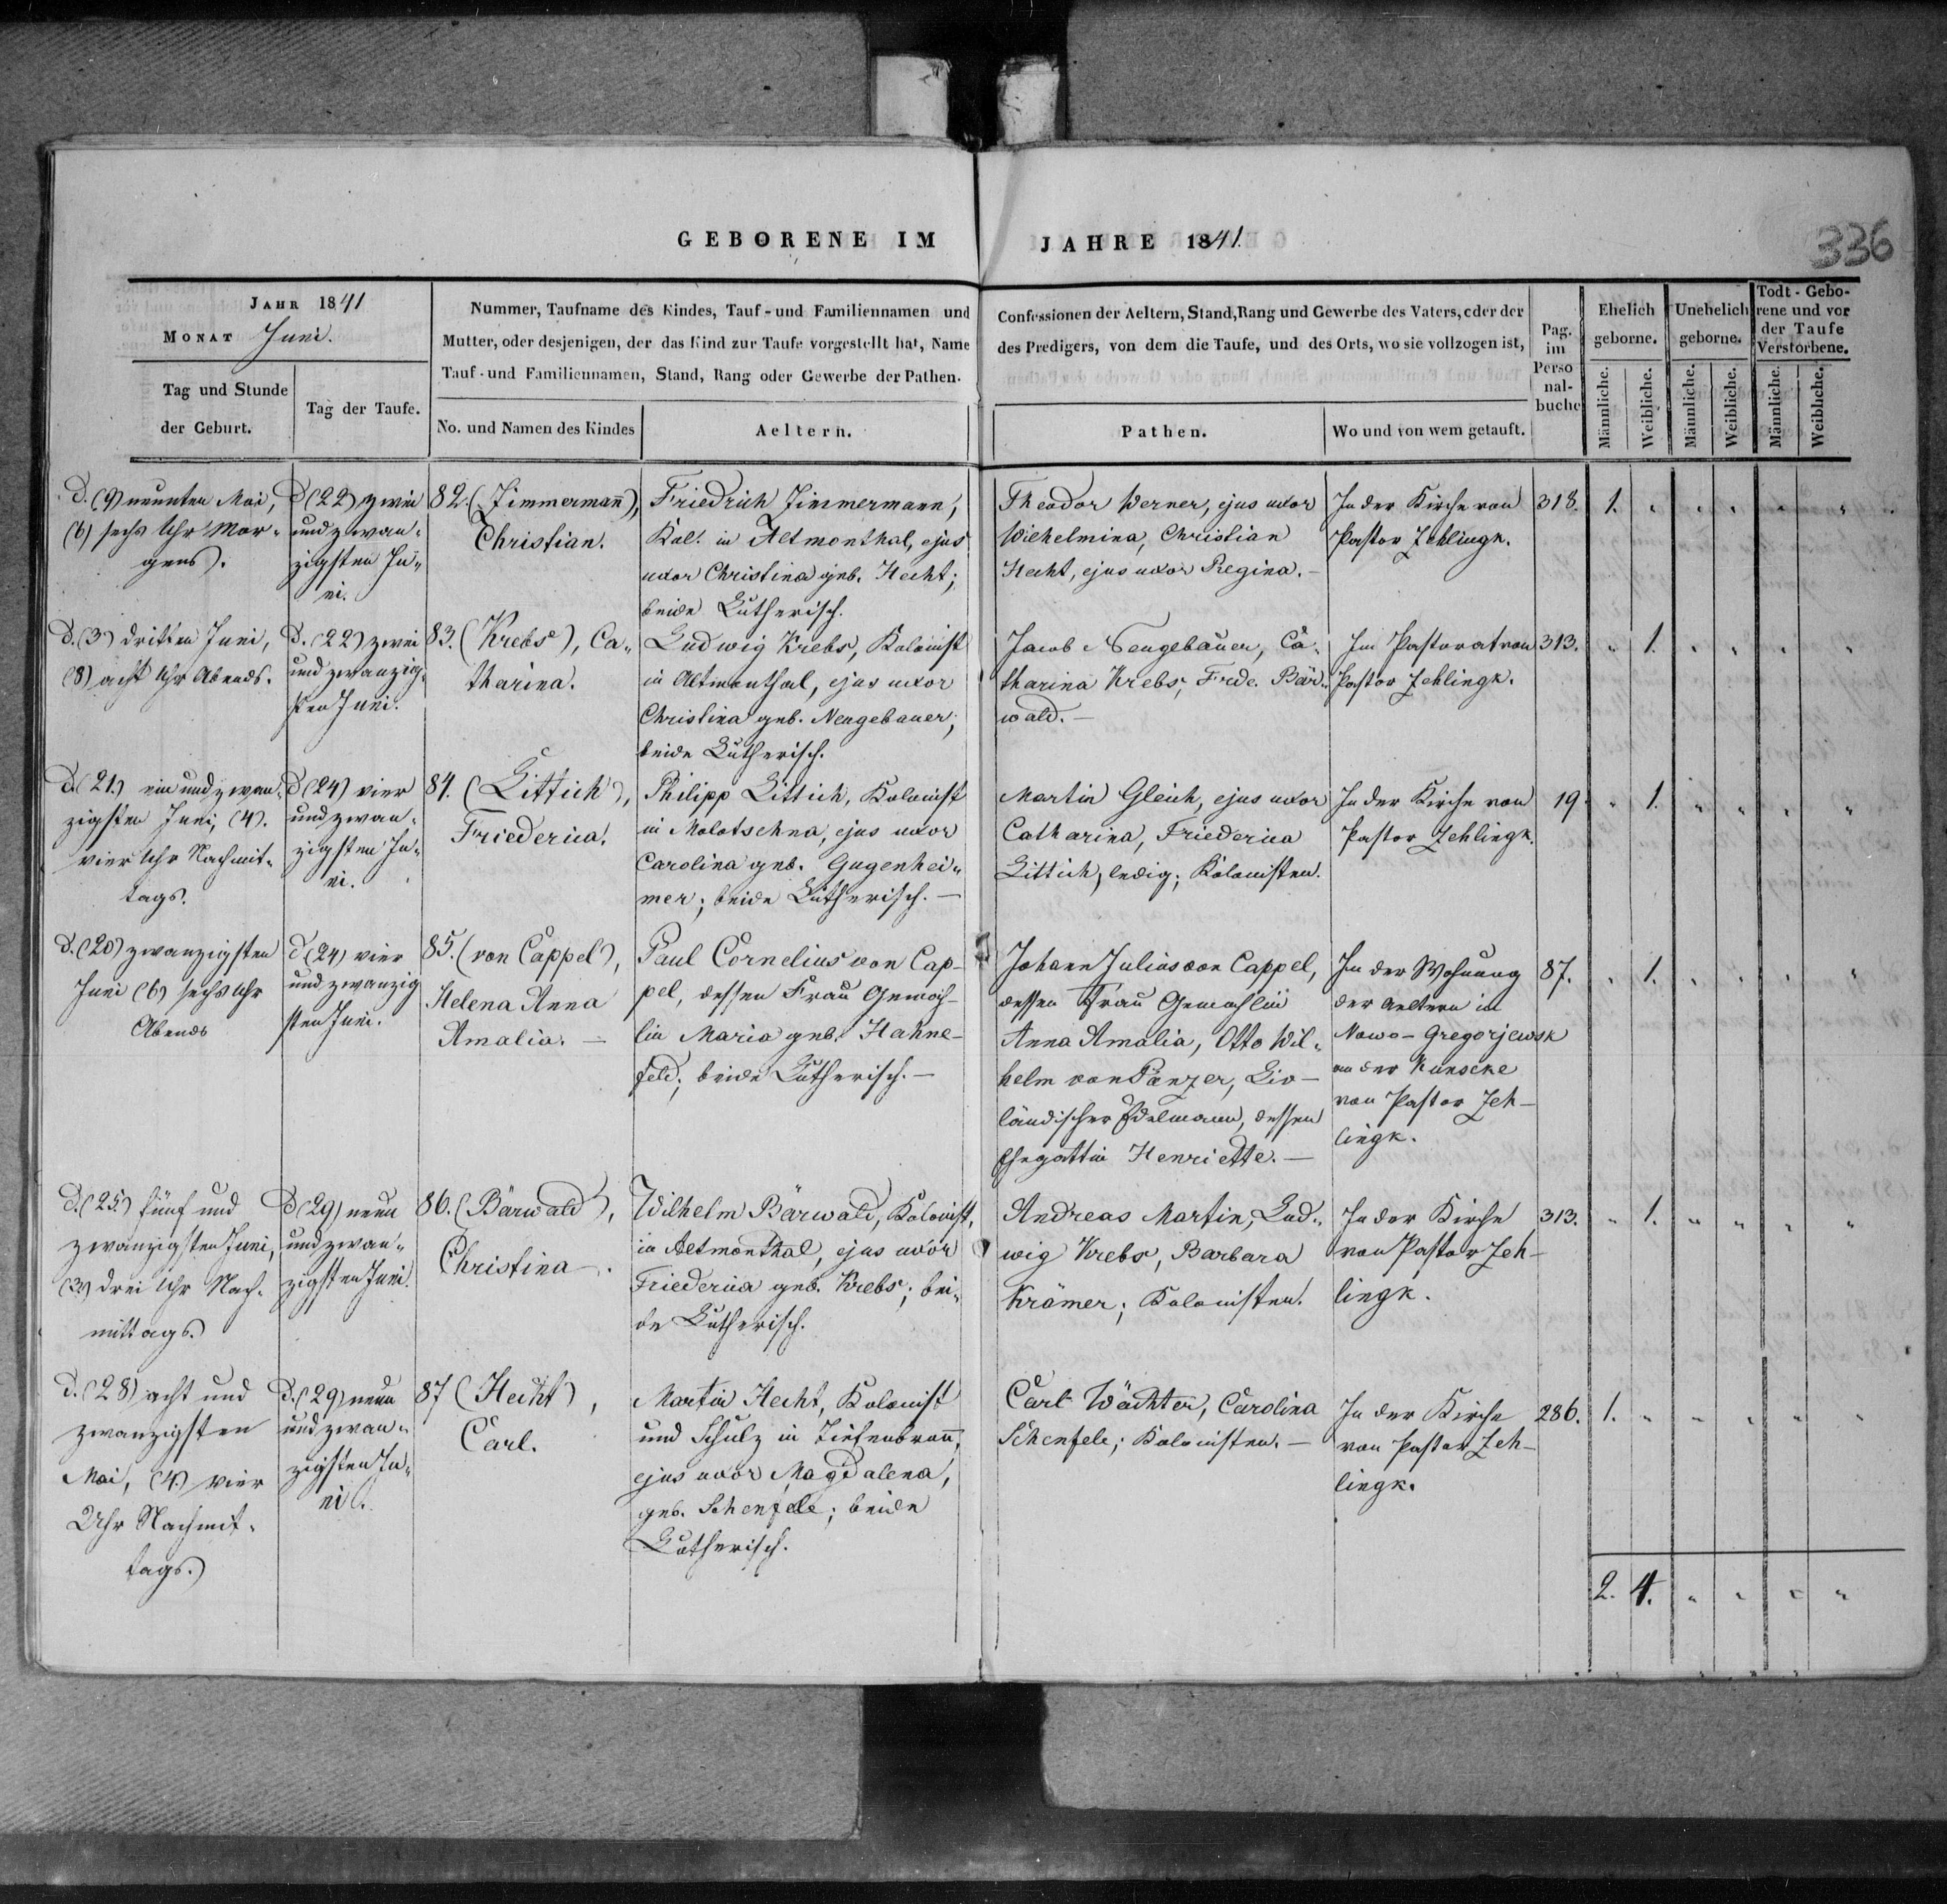 GEBORENE IM JAHRE 1841.
336
JAHR 1841
MONAT Juni.
Tag und Stunde
der Geburt.
Tag der Taufe.
Nummer, Taufname des Kindes, Tauf- und Familiennamen und
Mutter, oder desjenigen, der das Kind zur Taufe vorgestellt hat, Name
Tauf- und Familiennamen, Stand, Rang oder Gewerbe der Pathen.
No. und Namen des Kindes
Aeltern.
Confessionen der Aeltern, Stand, Rang und Gewerbe des Vaters, oder der
des Predigers, von dem die Taufe, und des Orts, wo sie vollzogen ist,
Pathen.
Wo und von wem getauft.
Pag.
im
Perso
nal-
buche
Ehelich
geborne.
Männliche.
Weibliche.
Unehelich
geborne.
Männliche.
Weibliche.
Todt-Gebo-
rene und vor
der Taufe
Verstorbene.
Männliche.
Weibliche.
d. (9) neunten Mai,
(6) sechs Uhr Mor-
gens.
d (22) zwei
und zwan-
zigsten Ju-
ni.
82. (Zimmermañ),
Christian.
Friedrich Zimmermann,
Kol. in Altmonthal, ejus
uxor Christina geb. Hecht;
beide Lutherisch.
Theodor Werner, ejus uxor
Wilhelmina, Christian
Hecht, ejus uxor Regina. –
In der Kirche von
Pastor Zehlingk.
318.
1.
d. (3) dritten Juni,
(8) acht Uhr Abends.
d. (22) zwei
und zwanzig-
sten Juni.
83. (Krebs), Ca-
tharina.
Ludwig Krebs, Kolonist
in Altmonthal, ejus uxor
Christina geb. Neugebauer;
beide Lutherisch.
Jacob Neugebauer, Ca-
tharina Krebs, Frde. Bär-
wald. –
Im Pastorat von
Pastor Zehlingk.
313.
1.
d. (21.) ein und zwan-
zigsten Juni, (4).
vier Uhr Nachmit-
tags.
d (24) vier
und zwan-
zigsten Ju-
ni.
84. (Littich),
Friederica.
Philipp Littich, Kolonist
in Molotschna, ejus uxor
Carolina geb. Gugenhei-
mer; beide Lutherisch. –
Martin Gleich, ejus uxor
Catharina, Friederica
Littich, ledig; Kolonisten.
In der Kirche von
Pastor Zehlingk.
19.
1.
d. (20) zwanzigsten
Juni (6) sechs Uhr
Abends
d (24) vier
und zwanzig
sten Juni.
85. (von Cappel),
Helena Anna
Amalia. –
Paul Cornelius von Cap-
pel, dessen Frau Gemah-
lin Maria geb. Hahne-
feld; beide Lutherisch. –
Johann Julius von Cappel,
dessen Frau Gemahlin
Anna Amalia, Otto Wil-
helm von Panzer, Liv-
ländischer Edelmann, dessen
Ehegattin Henriette. –
In der Wohnung
der Aeltern in
Nowo-Gregorjewsk
an der
von Pastor Zeh-
lingk.
87.
1.
d. (25.) fünf und
zwanzigsten Juni,
(3) drei Uhr Nach-
mittags.
d (29) neun
und zwan-
zigsten Juni.
86. (Bärwald),
Christina.
Wilhelm Bärwald, Kolonist,
in Altmonthal, ejus uxor
Friederica geb. Krebs; bei-
de Lutherisch.
Andreas Martin, Lud-
wig Krebs, Barbara
Krämer; Kolonisten.
In der Kirche
von Pastor Zeh-
lingk.
313.
1.
d. (28) acht und
zwanzigsten
Mai, (4.) vier
Uhr Nachmit-
tags.)
d. (29) neun
und zwan-
zigsten Ju-
ni.
87 (Hecht),
Carl.
Martin Hecht, Kolonist
und Schulz in Tiefenbruñ,
ejus uxor Magdalena,
geb. Schenfele; beide
Lutherisch.
Carl Wächter, Carolina
Schenfele; Kolonisten. –
In der Kirche
von Pastor Zeh-
lingk.
286.
1.
2. 4.